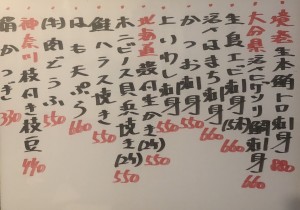 生本鮪トロ刺身 880
大分県 活〆ヒゲソリ鯛刺身 660
生食エビ刺身(5本) 660
活〆はまち刺身 660
かつお刺身 660
上いわし刺身 550
北海道 殻付生かき(2ヶ) 550
ホンビノス貝浜焼き(2ヶ) 550
鮭ハラス焼き 550
はも天ぷら 660
牛肉どうふ 550
神奈川 枝付き枝豆 440
絹かつぎ 330